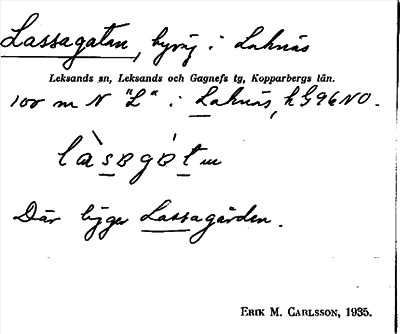 Lassagatan, byväg i Laknäs
Leksands sn, Leksands och Gagnefs tg, Kopparbergs län.
100 m N "L" i Laknäs, h G96NO.
Där ligger Lassagården.
ERIK M. CARLSSON, 1935.